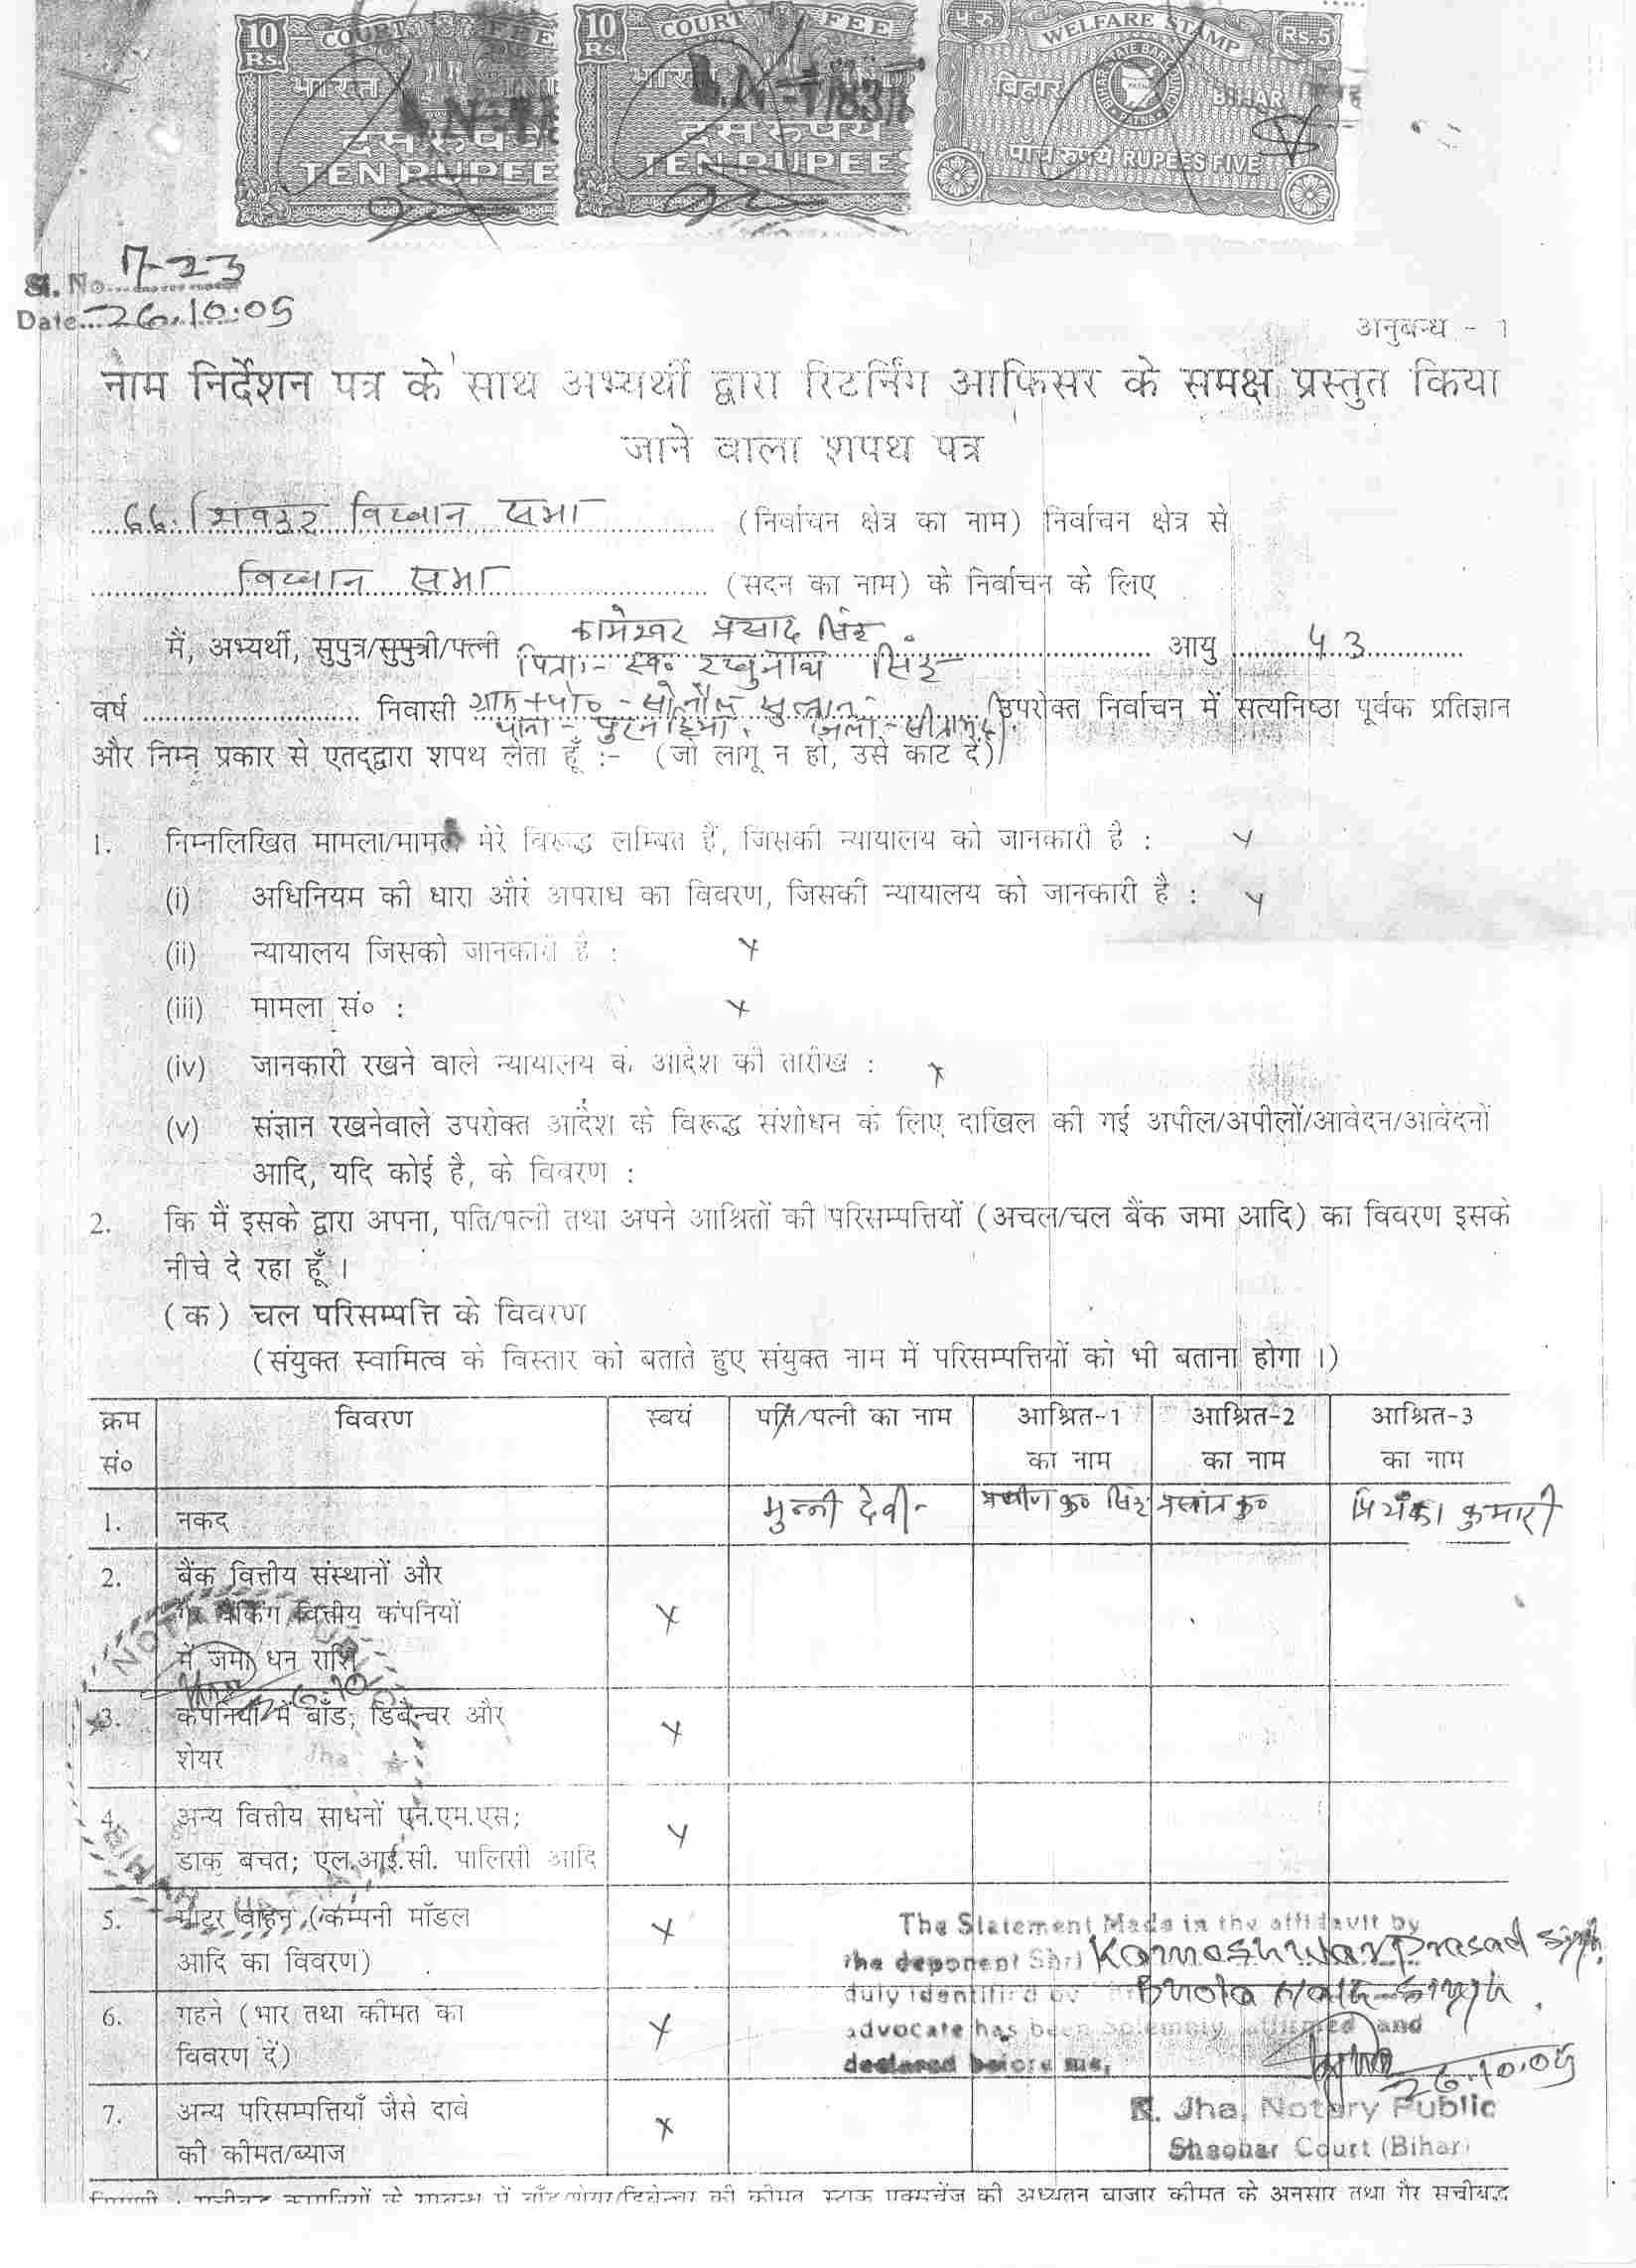 10 Rs. COURT FEE
भारत
दस रुपये
TEN RUPEE
10 Rs. COURT FEE
भारत
दस रुपये
TEN RUPEES
५ रु. WELFARE STAMP Rs.5
बिहार BIHAR
BIHAR STATE BAR COUNCIL PATNA
पाँच रुपये RUPEES FIVE
Sl. No. 17-23
Date 26.10.05
अनुबन्ध - 1
नाम निर्देशन पत्र के साथ अभ्यर्थी द्वारा रिटर्निंग आफिसर के समक्ष प्रस्तुत किया
जाने वाला शपथ पत्र
66. शिवहर विधान सभा (निर्वाचन क्षेत्र का नाम) निर्वाचन क्षेत्र से
विधान सभा (सदन का नाम) के निर्वाचन के लिए
कामेश्वर प्रसाद सिंह
मैं, अभ्यर्थी, सुपुत्र/सुपुत्री/पत्नी पिता:- स्व० रघुनाथ सिंह आयु 43
वर्ष निवासी ग्राम+पो० - सुल्तान उपरोक्त निर्वाचन में सत्यनिष्ठा पूर्वक प्रतिज्ञान
थाना - पुरनहिया, जिला -
और निम्न प्रकार से एतद्द्वारा शपथ लेता हूँ :- (जो लागू न हो, उसे काट दें)
1. निम्नलिखित मामला/मामले मेरे विरूद्ध लम्बित हैं, जिसकी न्यायालय को जानकारी है : x
(i) अधिनियम की धारा और अपराध का विवरण, जिसकी न्यायालय को जानकारी है : x
(ii) न्यायालय जिसको जानकारी है : x
(iii) मामला सं० : x
(iv) जानकारी रखने वाले न्यायालय के आदेश की तारीख : x
(v) संज्ञान रखनेवाले उपरोक्त आदेश के विरूद्ध संशोधन के लिए दाखिल की गई अपील/अपीलों/आवेदन/आवेदनों
आदि, यदि कोई है, के विवरण :
2. कि मैं इसके द्वारा अपना, पति/पत्नी तथा अपने आश्रितों की परिसम्पत्तियों (अचल/चल बैंक जमा आदि) का विवरण इसके
नीचे दे रहा हूँ ।
(क) चल परिसम्पत्ति के विवरण
(संयुक्त स्वामित्व के विस्तार को बताते हुए संयुक्त नाम में परिसम्पत्तियों को भी बताना होगा ।)
क्रम विवरण स्वयं पति/पत्नी का नाम आश्रित-1 आश्रित-2 आश्रित-3
सं० का नाम का नाम का नाम
1. नकद मुन्नी देवी प्रवीण कु० सिंह प्रशांत कु० प्रियंका कुमारी
2. बैंक वित्तीय संस्थानों और
गैर बैंकिंग वित्तीय कंपनियों x
में जमा धन राशि
3. कंपनियों में बाँड; डिबेन्चर और x
शेयर
4. अन्य वित्तीय साधनों एन.एम.एस; x
डाक बचत; एल.आई.सी. पालिसी आदि
5. मोटर वाहन (कम्पनी मॉडल x
आदि का विवरण)
6. गहने (भार तथा कीमत का x
विवरण दें)
7. अन्य परिसम्पत्तियाँ जैसे दावे x
की कीमत/ब्याज
The Statement Made in the affidavit by
the deponent Shri Kameshwar Prasad Singh
duly identified by Bhola Nath Singh
advocate has been Solemnly affirmed and
declared before me,
26.10.05
K. Jha, Notary Public
Sheohar Court (Bihar)
टिप्पणी : सूचीबद्ध कम्पनियों के सम्बन्ध में बाँड/शेयर/डिबेन्चर की कीमत स्टाक एक्सचेंज की अध्यतन बाजार कीमत के अनुसार तथा गैर सूचीबद्ध